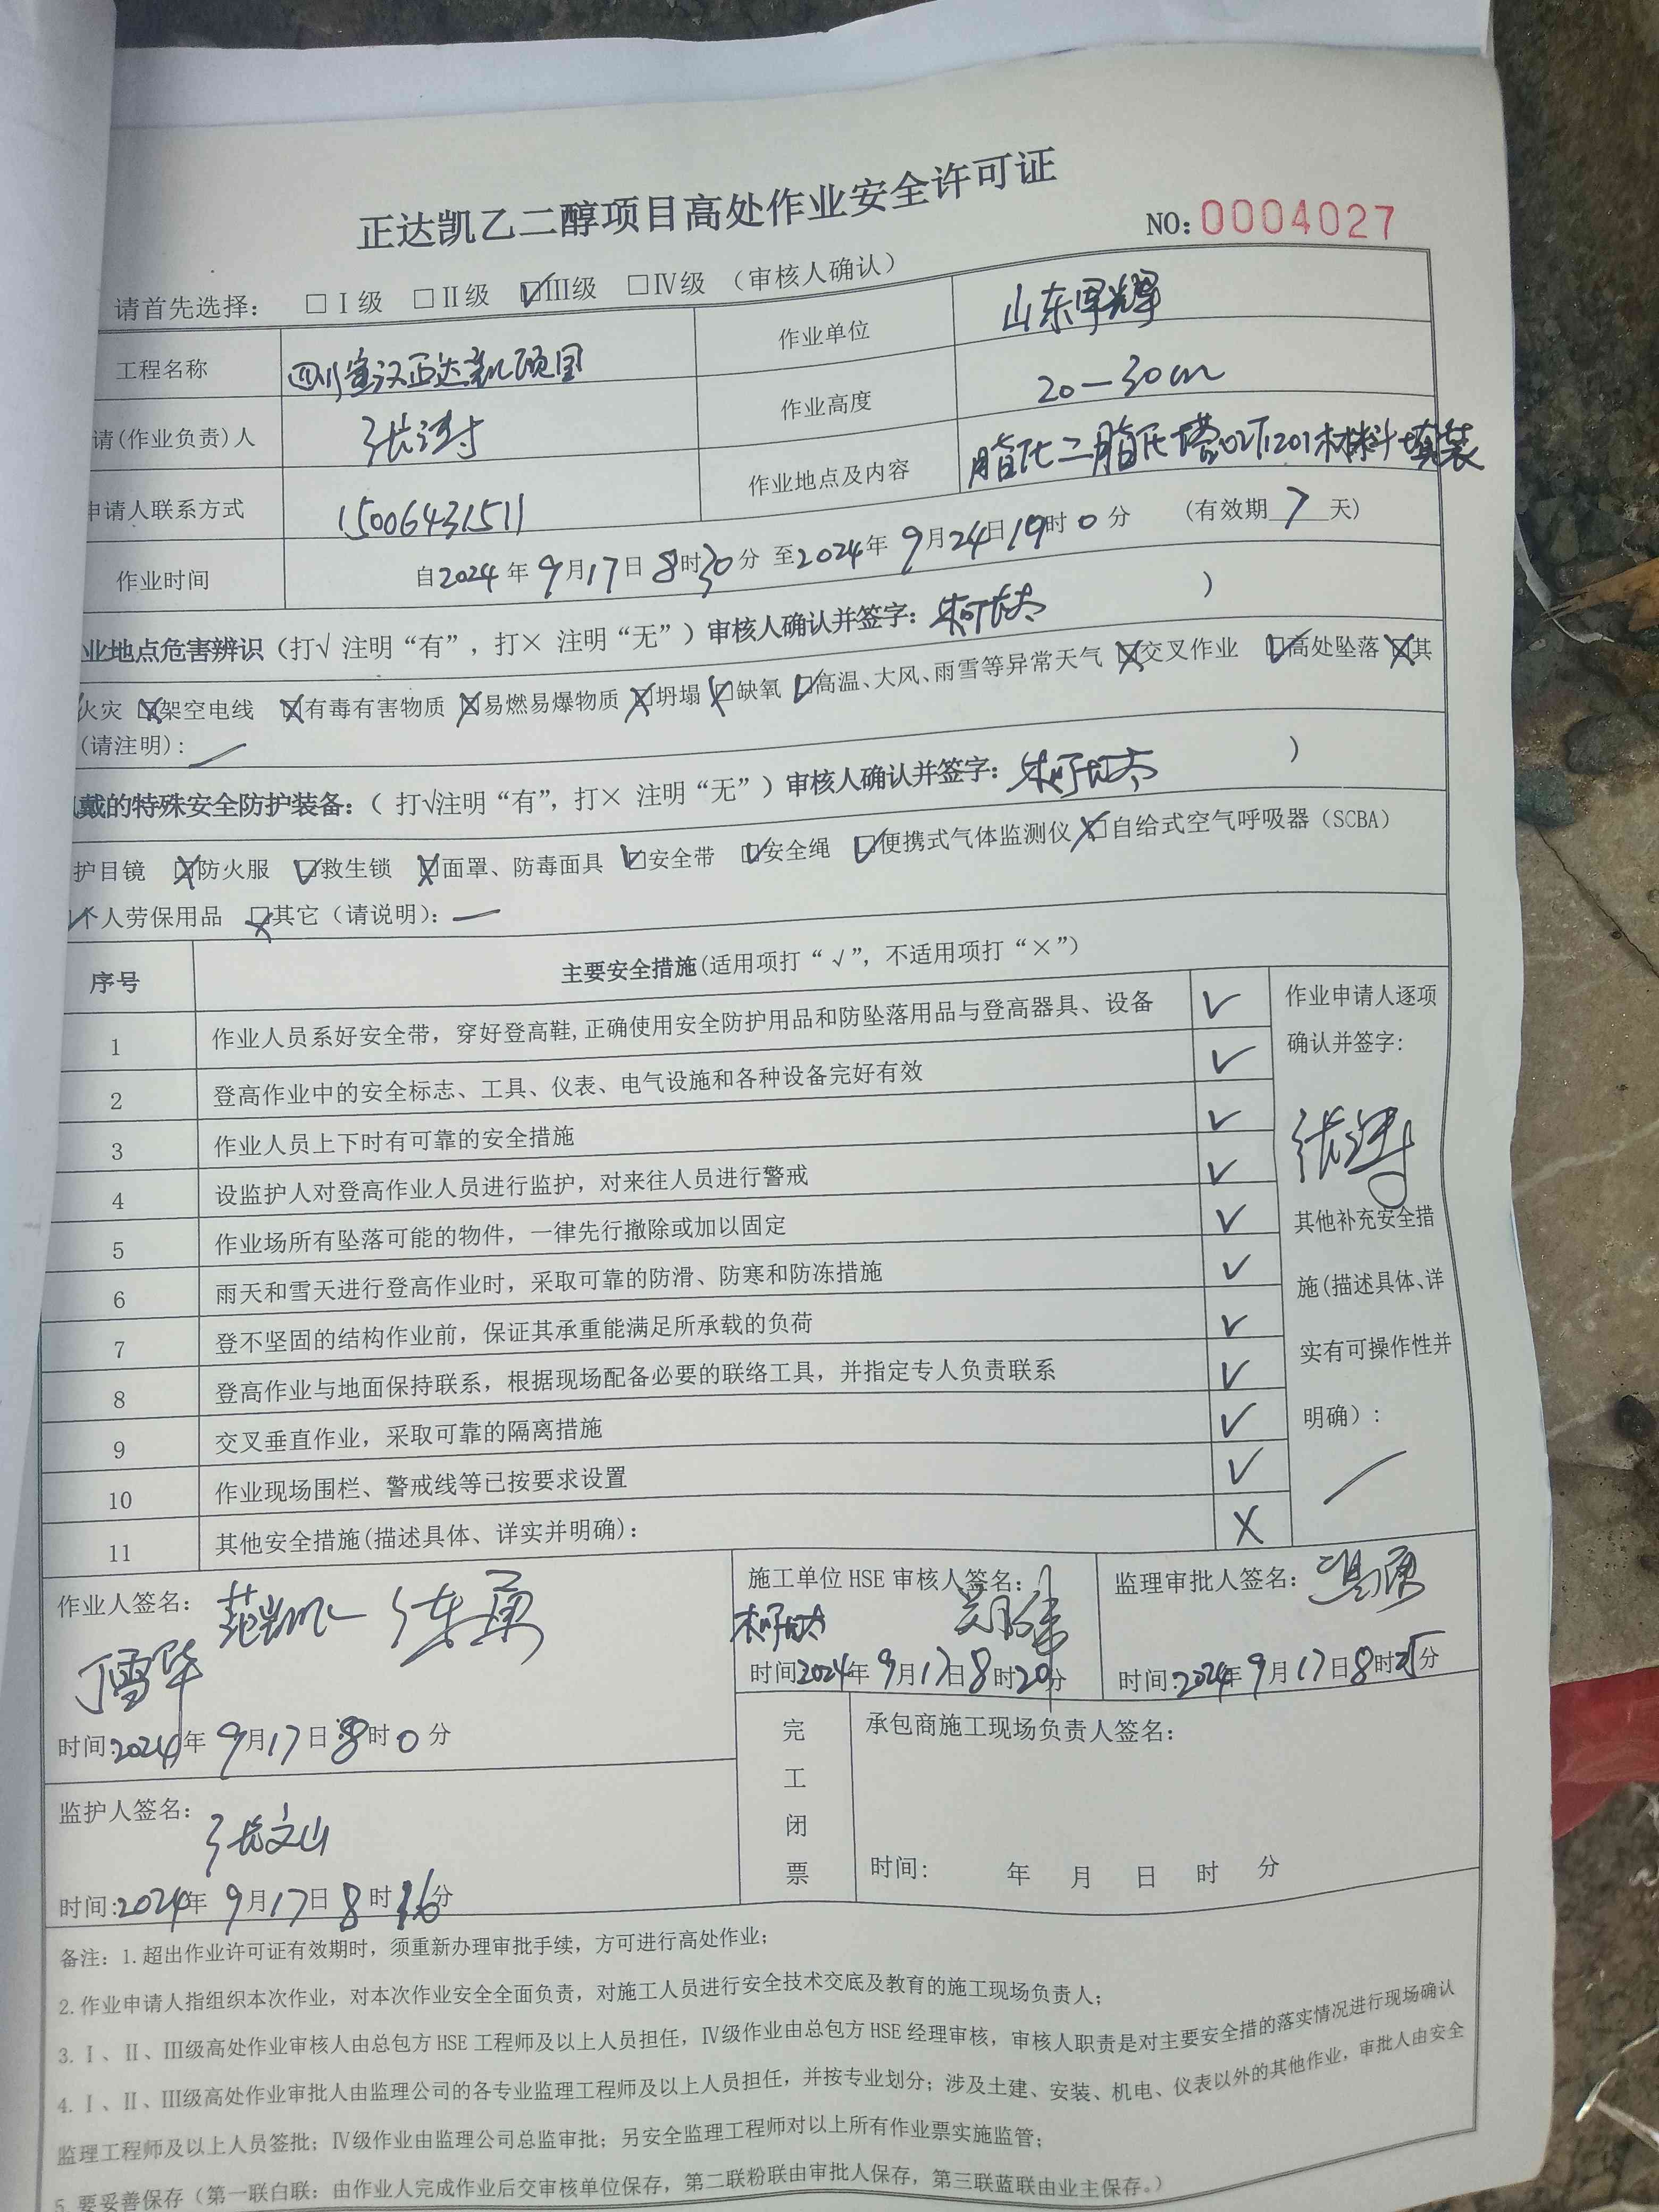 正达凯乙二醇项目高处作业安全许可证
NO:0004027
请首先选择: □Ⅰ级 □Ⅱ级 ☑Ⅲ级 □Ⅳ级 (审核人确认)
工程名称 四川宣汉正达凯项目 作业单位 山东军辉
请(作业负责)人 作业高度 20-30m
申请人联系方式 15006431511 作业地点及内容 脂化二脂化塔02T1201材料填装
作业时间 自2024年9月17日8时30分 至2024年9月24日19时0分 (有效期 7 天)
业地点危害辨识(打√ 注明“有”, 打× 注明“无”)审核人确认并签字: )
火灾 ☒架空电线 ☒有毒有害物质 ☒易燃易爆物质 ☒坍塌 ☒缺氧 ☑高温、大风、雨雪等异常天气 ☒交叉作业 ☑高处坠落 ☒其
(请注明): /
戴的特殊安全防护装备:( 打√注明“有”, 打× 注明“无”)审核人确认并签字: )
护目镜 ☒防火服 ☑救生锁 ☒面罩、防毒面具 ☑安全带 ☑安全绳 ☑便携式气体监测仪 ☒自给式空气呼吸器(SCBA)
☑个人劳保用品 ☒其它(请说明): —
序号 主要安全措施(适用项打“√”, 不适用项打“×”)
1 作业人员系好安全带, 穿好登高鞋, 正确使用安全防护用品和防坠落用品与登高器具、设备 √
2 登高作业中的安全标志、工具、仪表、电气设施和各种设备完好有效 √
3 作业人员上下时有可靠的安全措施 √
4 设监护人对登高作业人员进行监护, 对来往人员进行警戒 √
5 作业场所有坠落可能的物件, 一律先行撤除或加以固定 √
6 雨天和雪天进行登高作业时, 采取可靠的防滑、防寒和防冻措施 √
7 登不坚固的结构作业前, 保证其承重能满足所承载的负荷 √
8 登高作业与地面保持联系, 根据现场配备必要的联络工具, 并指定专人负责联系 √
9 交叉垂直作业, 采取可靠的隔离措施 √
10 作业现场围栏、警戒线等已按要求设置 √
11 其他安全措施(描述具体、详实并明确): ×
作业申请人逐项
确认并签字:
其他补充安全措
施(描述具体、详
实有可操作性并
明确):
/
作业人签名: 范凯凡 张勇
丁雪华
时间:2024年9月17日8时0分
监护人签名: 张文山
时间:2024年9月17日8时16分
施工单位 HSE 审核人签名:
时间2024年9月17日8时20分
监理审批人签名:
时间:2024年9月17日8时25分
完工闭票
承包商施工现场负责人签名:
时间: 年 月 日 时 分
备注: 1.超出作业许可证有效期时, 须重新办理审批手续, 方可进行高处作业;
2.作业申请人指组织本次作业, 对本次作业安全全面负责, 对施工人员进行安全技术交底及教育的施工现场负责人;
3.Ⅰ、Ⅱ、Ⅲ级高处作业审核人由总包方 HSE 工程师及以上人员担任, Ⅳ级作业由总包方 HSE 经理审核, 审核人职责是对主要安全措的落实情况进行现场确认
4.Ⅰ、Ⅱ、Ⅲ级高处作业审批人由监理公司的各专业监理工程师及以上人员担任, 并按专业划分; 涉及土建、安装、机电、仪表以外的其他作业, 审批人由安全
监理工程师及以上人员签批; Ⅳ级作业由监理公司总监审批; 另安全监理工程师对以上所有作业票实施监管;
5.要妥善保存(第一联白联: 由作业人完成作业后交审核单位保存, 第二联粉联由审批人保存, 第三联蓝联由业主保存。)